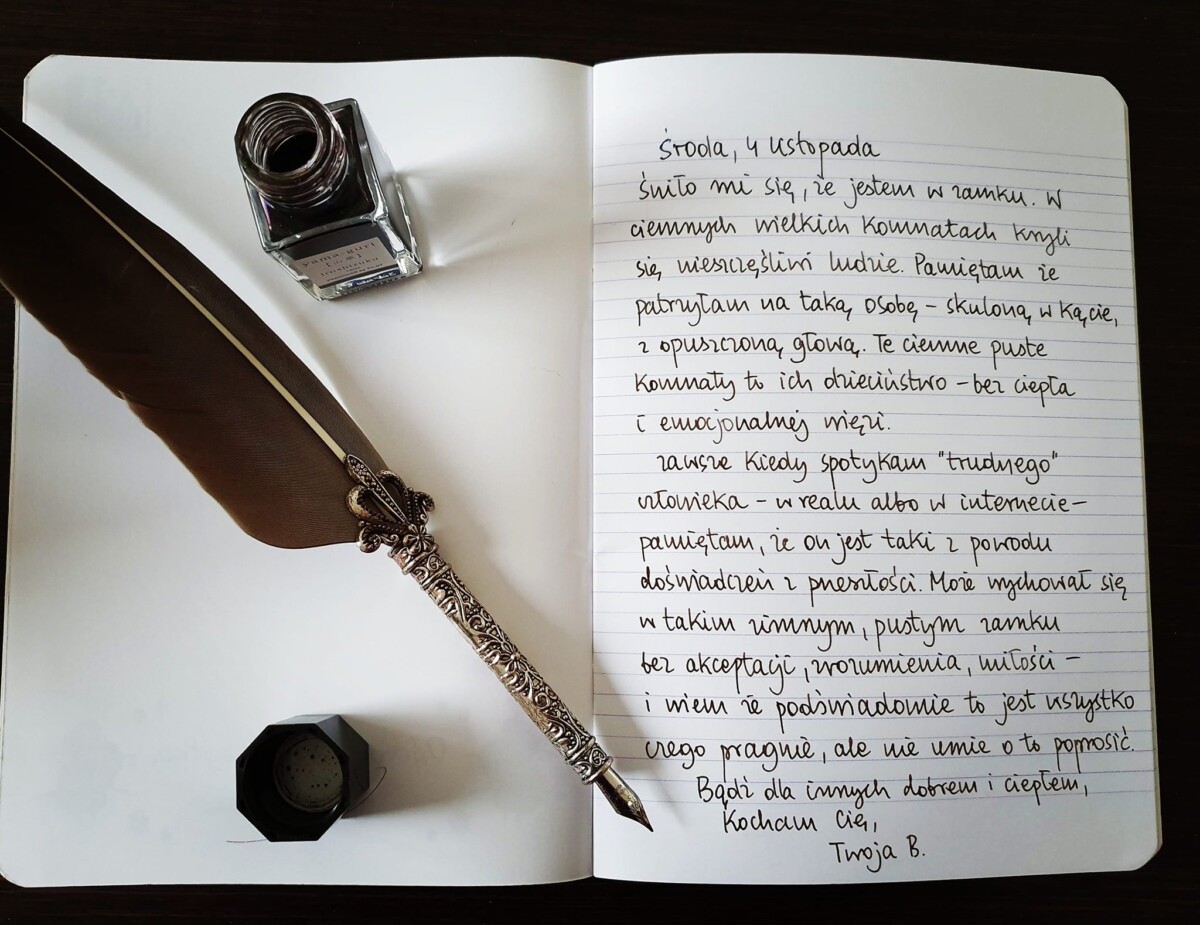 yama-guri
iroshizuku
środa, 4 listopada
śniło mi się, że jestem w zamku. W
ciemnych wielkich komnatach kryli
się nieszczęśliwi ludzie. Pamiętam że
patrzyłam na taką osobę – skuloną w kącie,
z opuszczoną głową. Te ciemne puste
komnaty to ich dzieciństwo – bez ciepła
i emocjonalnej więzi.
zawsze kiedy spotykam "trudnego"
człowieka – w realu albo w internecie –
pamiętam, że on jest taki z powodu
doświadczeń z przeszłości. Może wychował się
w takim zimnym, pustym zamku
bez akceptacji, zrozumienia, miłości –
i wiem że podświadomie to jest wszystko
czego pragnie, ale nie umie o to poprosić.
Bądź dla innych dobrem i ciepłem,
Kocham Cię,
Twoja B.